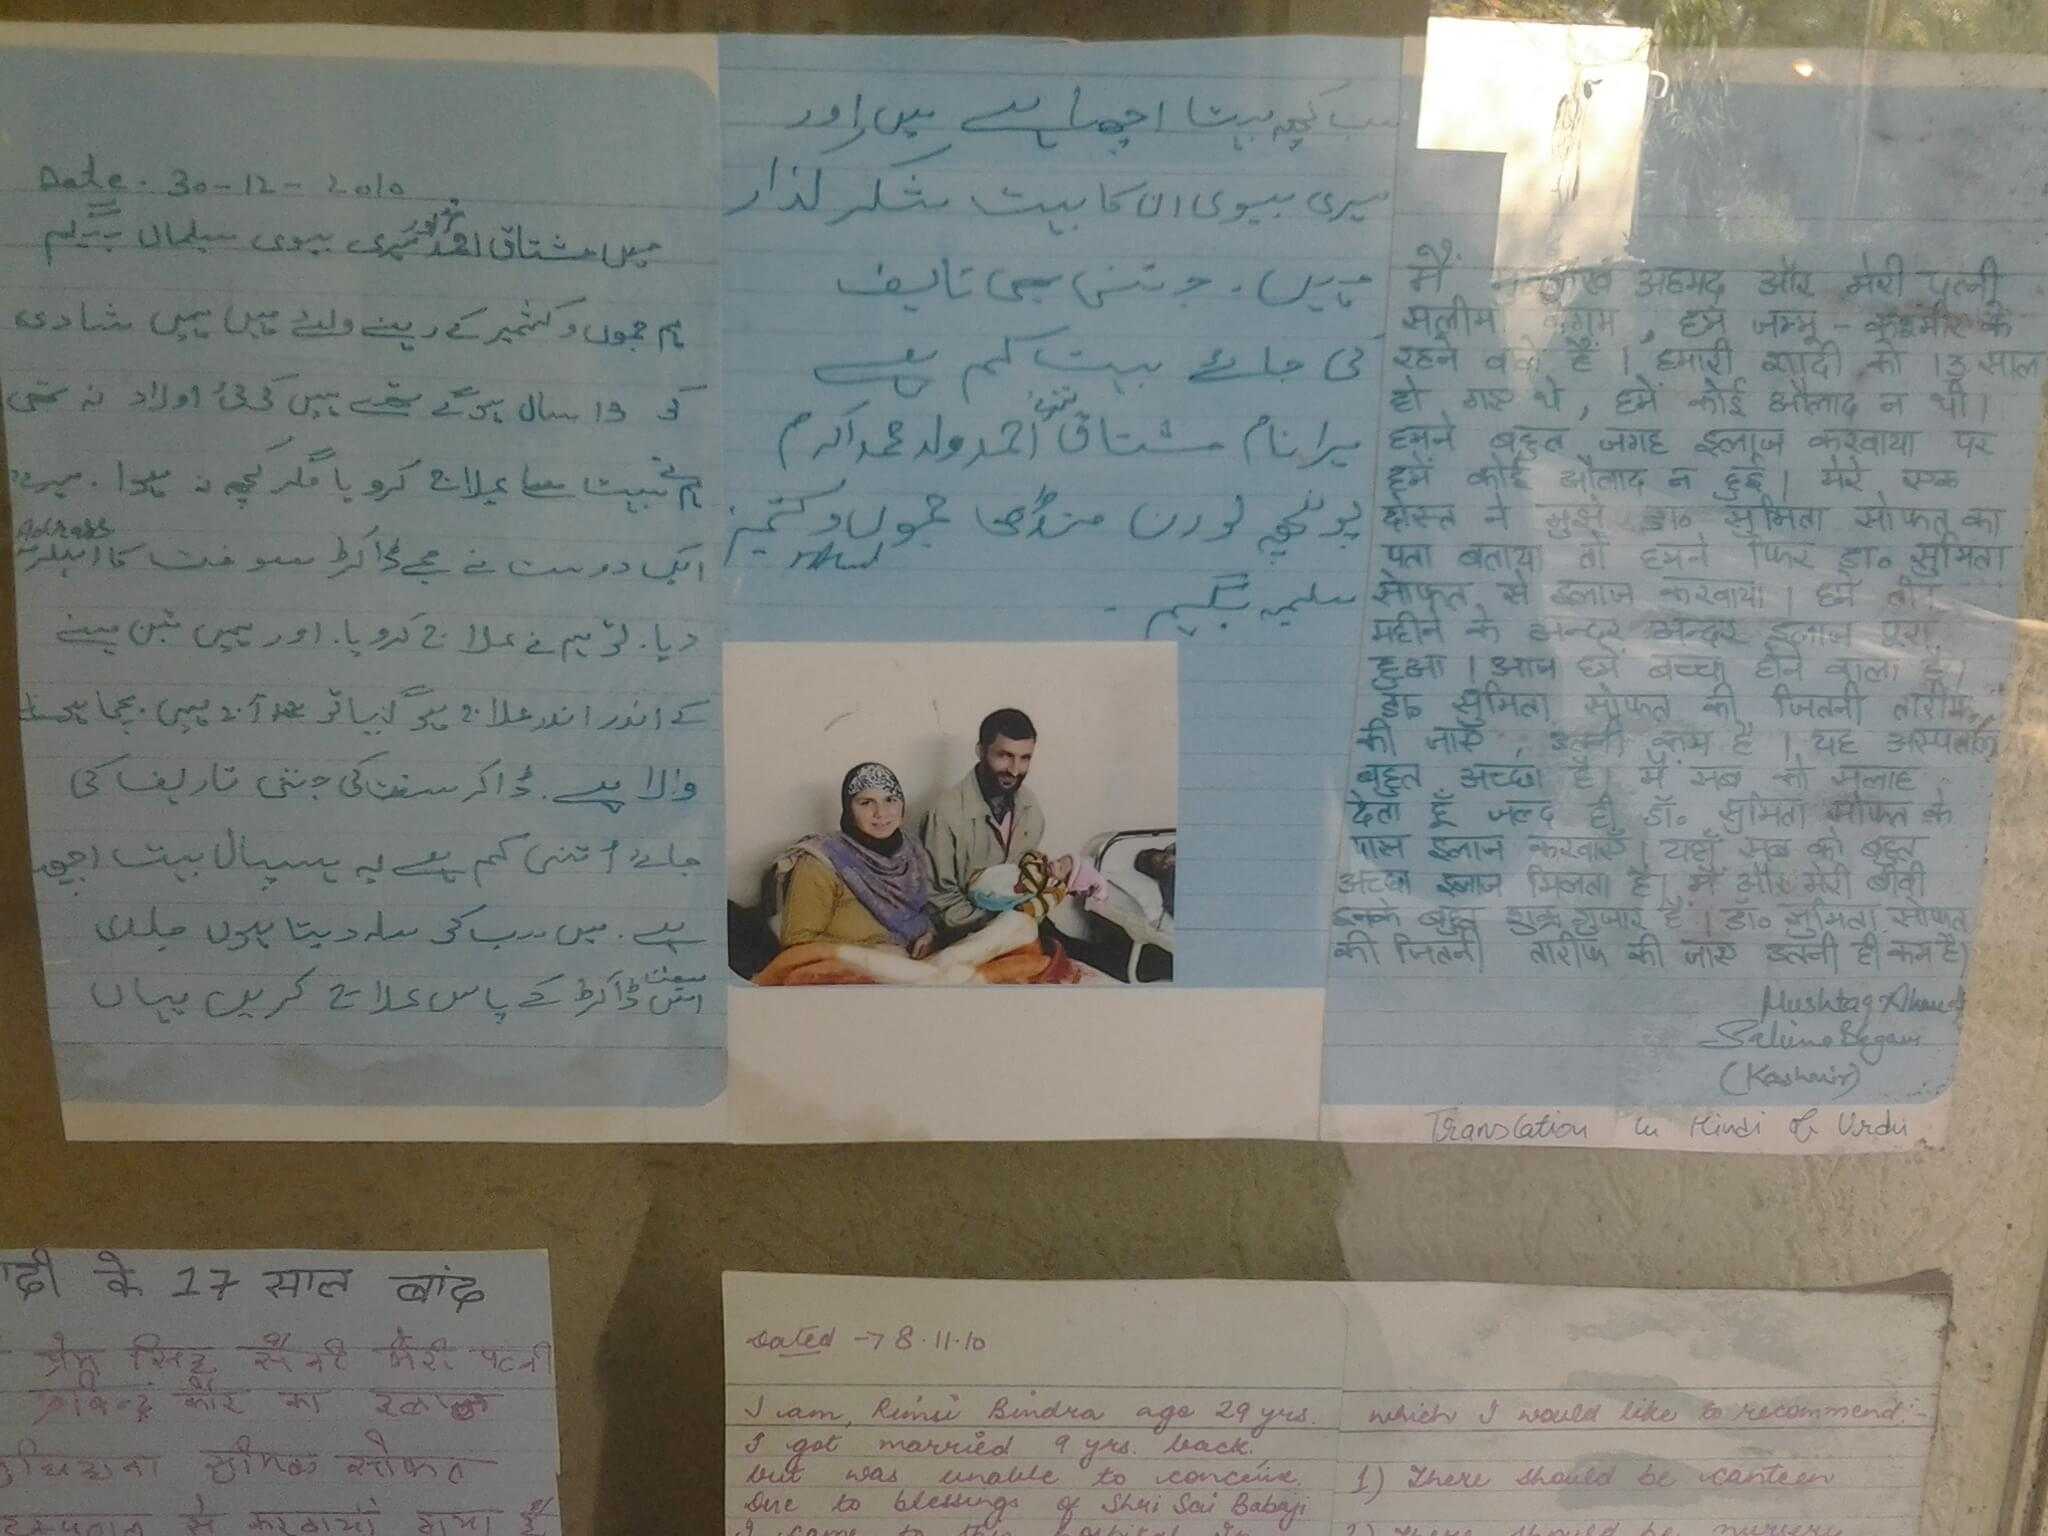 Date. 30-12-2010
میں مشتاق احمد میری بیوی سلیماں بیگیم
ہم جموں و کشمیر کے رہنے ولے ہیں ہمیں شادی
کو 13 سال ہوگے تھے ہمیں کوئی اولاد نہ تھی
ہم نے بہت سا علاج کرویا مگر کچھ نہ ہوا. میرے
Address
ایک دوست نے مجے ڈاکڑ سوفت کا
دیا. تو ہم نے علاج کرویا. اور ہمیں تین مہنے
کے اندر اندر علاج ہوگیا تو آج ہمیں بچا
والا ہے. ڈاکڑ سفت کی جتنی تاریف کی
جاۓ اتنی کم ہے یہ ہسپتال بہت اچھا
ہے. میں سب کو سلہ دیتا ہوں جلدی
ڈاکڑ کے پاس علاج کریں یہاں
سب کچھ بہت اچھا ہے میں اور
میری بیوی ان کا بہت شکر گذار
ہیں. جتنی بھی تایف
کی جاۓ بہت کم ہے
میرا نام مشتاق احمد ولد محمد اکرم
پونچھ لورن منڈی جموں و کشمیر
سلیمہ بیگیم.
मैं अहमद और मेरी पत्नी
सलीमा बेगम, हम जम्मू-कश्मीर के
रहने वाले हैं। हमारी शादी को 13 साल
हो गए थे, हमें कोई औलाद न थी।
हमने बहुत जगह इलाज करवाया पर
हमें कोई औलाद न हुई। मेरे एक
दोस्त ने मुझे डा॰ सुमिता सोफत का
पता बताया तो हमने फिर डा॰ सुमिता
सोफत से इलाज करवाया। हमें तीन
महीने के अन्दर अन्दर इलाज पूरा
हुआ। आज हमें बच्चा होने वाला है।
डा॰ सुमिता सोफत की जितनी तारीफ
की जाए, इतनी कम है। यह अस्पताल
बहुत अच्छा है। मैं सब को सलाह
देता हूँ जल्द ही डॉ॰ सुमिता सोफत के
पास इलाज करवाएँ। यहाँ सब को बहुत
अच्छा इलाज मिलता है। मैं और मेरी बीवी
इनके बहुत शुक्र गुजार हैं। डॉ॰ सुमिता सोफत
की जितनी तारीफ की जाए इतनी ही कम है।
Mushtaq Ahmed
Salima Begam
(Kashmir)
Translation in Hindi of Urdu
के 17 साल बांद
प्रेम सिंह सैनी मेरी पत्नी
कौर का
सोफत
से करवाया गया है
Dated → 8.11.10
I am, Rimsi Bindra age 29 yrs.
I got married 9 yrs. back.
but was unable to conceive.
Due to blessings of Shri Sai Babaji
I came to this hospital in
which I would like to recommend:-
1) There should be canteen
2) There should be nursery